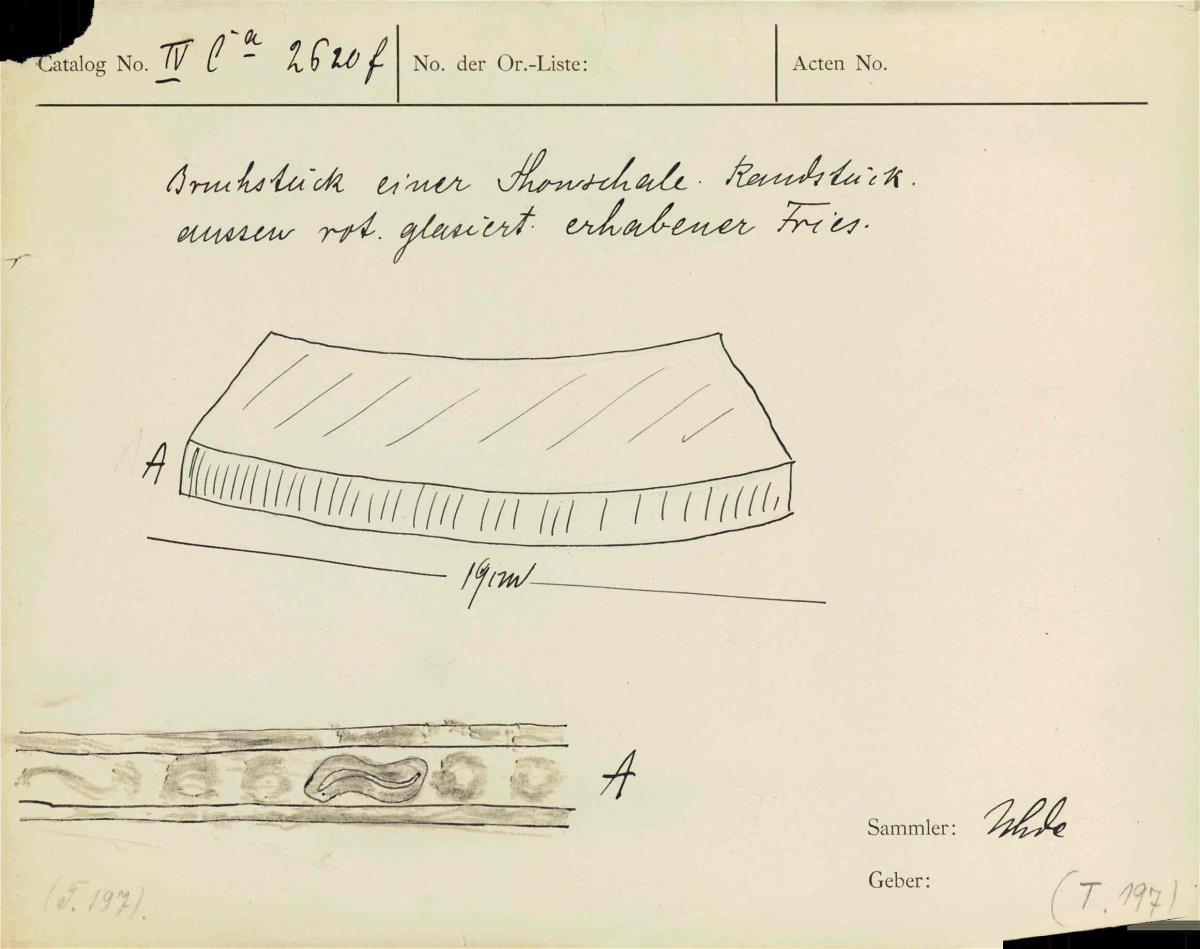 Catalog No. IV Ca 2620 f
No. der Or.-Liste:
Acten No.
Bruchstück einer Thonschale. Randstück.
aussen rot. glasiert. erhabener Fries.
A
19cm
A
Sammler: Uhde
Geber:
(T. 197).
(T. 197)